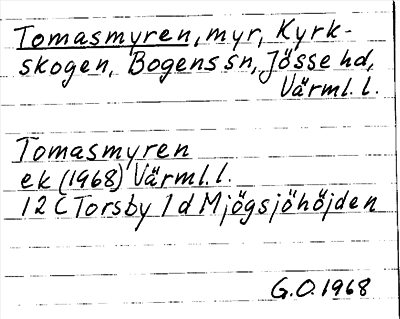 Tomasmyren, myr, Kyrk-
skogen, Bogens sn, Jösse hd,
Värml. l.
Tomasmyren
ek (1968) Värml. l.
12 C Torsby 1 d Mjögsjöhöjden
G.O. 1968